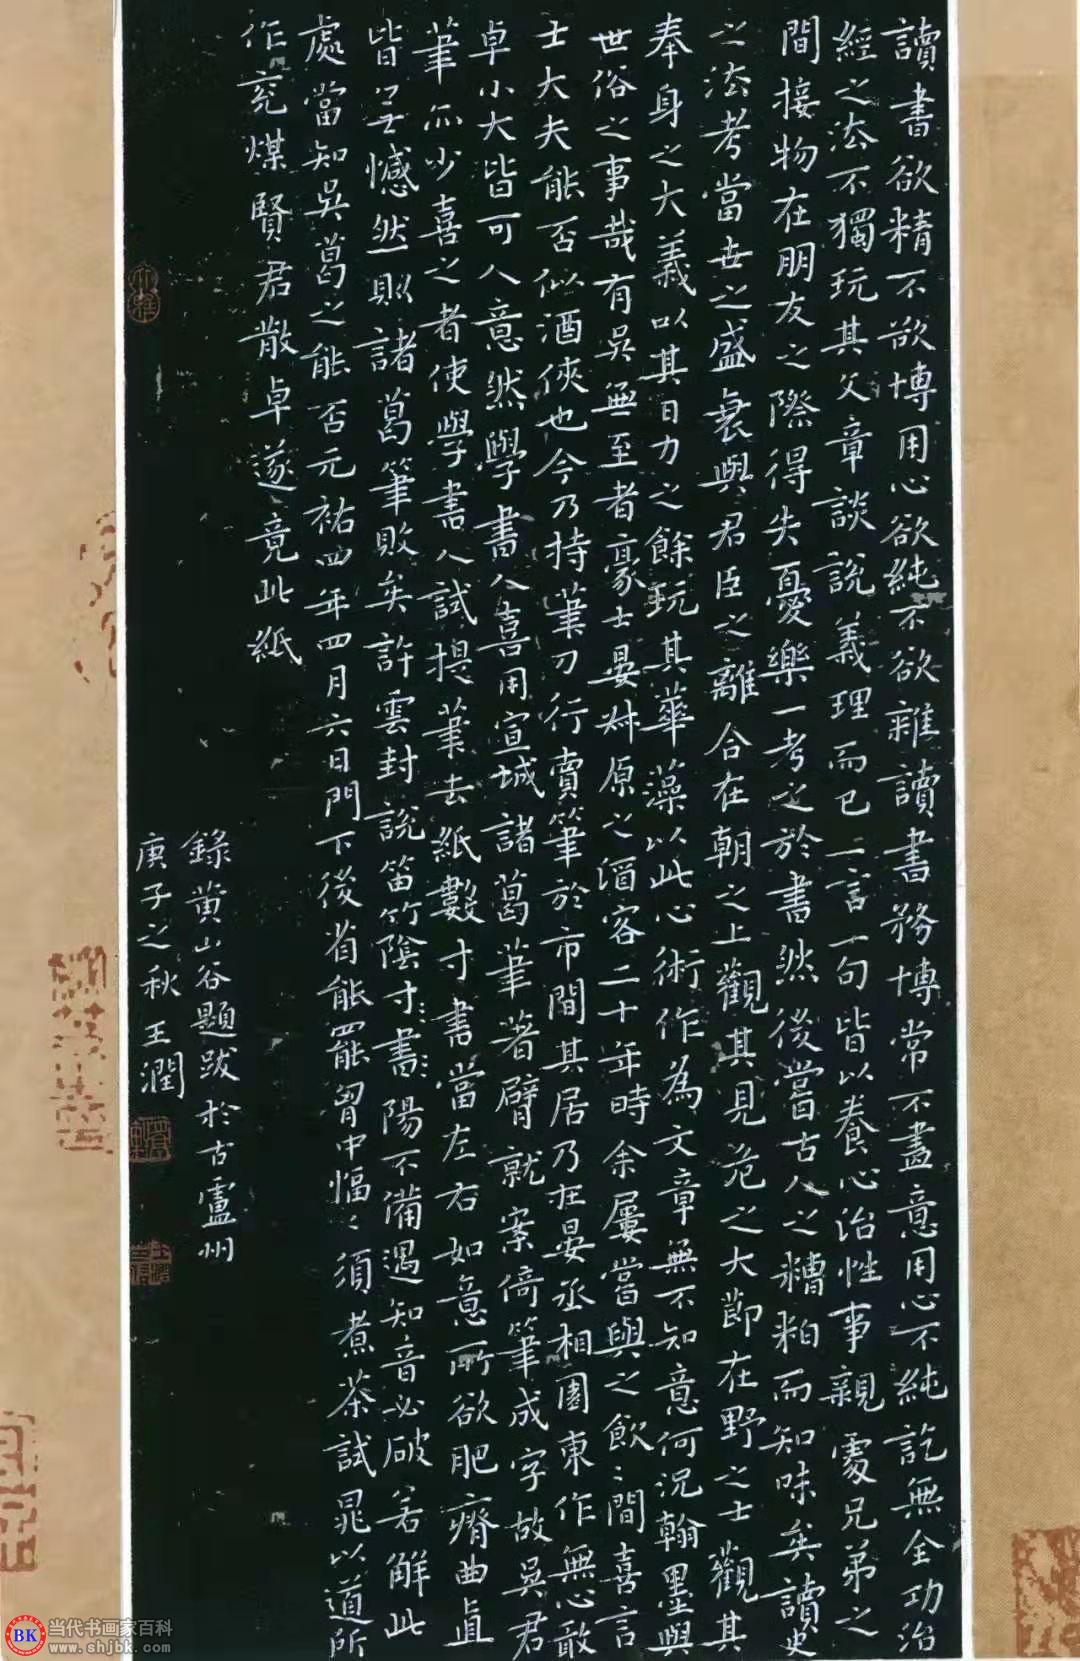 讀書欲精不欲博用心欲純不欲雜讀書務博常不盡意用心不純訖無全功治
經之法不獨玩其文章談說義理而已一言一句皆以養心治性事親處兄弟之
間接物在朋友之際得失憂樂一考之於書然後嘗古人之糟粕而知味矣讀史
之法考當世之盛衰與君臣之離合在朝之上觀其見危之大節在野之士觀其
奉身之大義以其日力之餘玩其華藻以此心術作為文章無不知意何況翰墨與
世俗之事哉有吳無至者豪士晏叔原之酒客二十年時余屢嘗與之飲飲間喜言
士大夫能否似酒俠也今乃持筆刀行賣筆於市間其居乃在晏丞相園東作無心散
卓小大皆可人意然學書人喜用宣城諸葛筆著臂就案倚筆成字故吳君
筆亦少喜之者使學書人試提筆去紙數寸書當左右如意所欲肥瘠曲直
皆無憾然則諸葛筆敗矣許雲封說笛竹陰寸書陽不備遇知音必破若解此
處當知吳葛之能否元祐四年四月六日門下後省能罷胃中愊愊須煮茶試晁以道所
作兗煤賢君散卓遂竟此紙
錄黃山谷題跋於古盧州
庚子之秋王潤
當代书画家百科
www.shjbk.com
BK